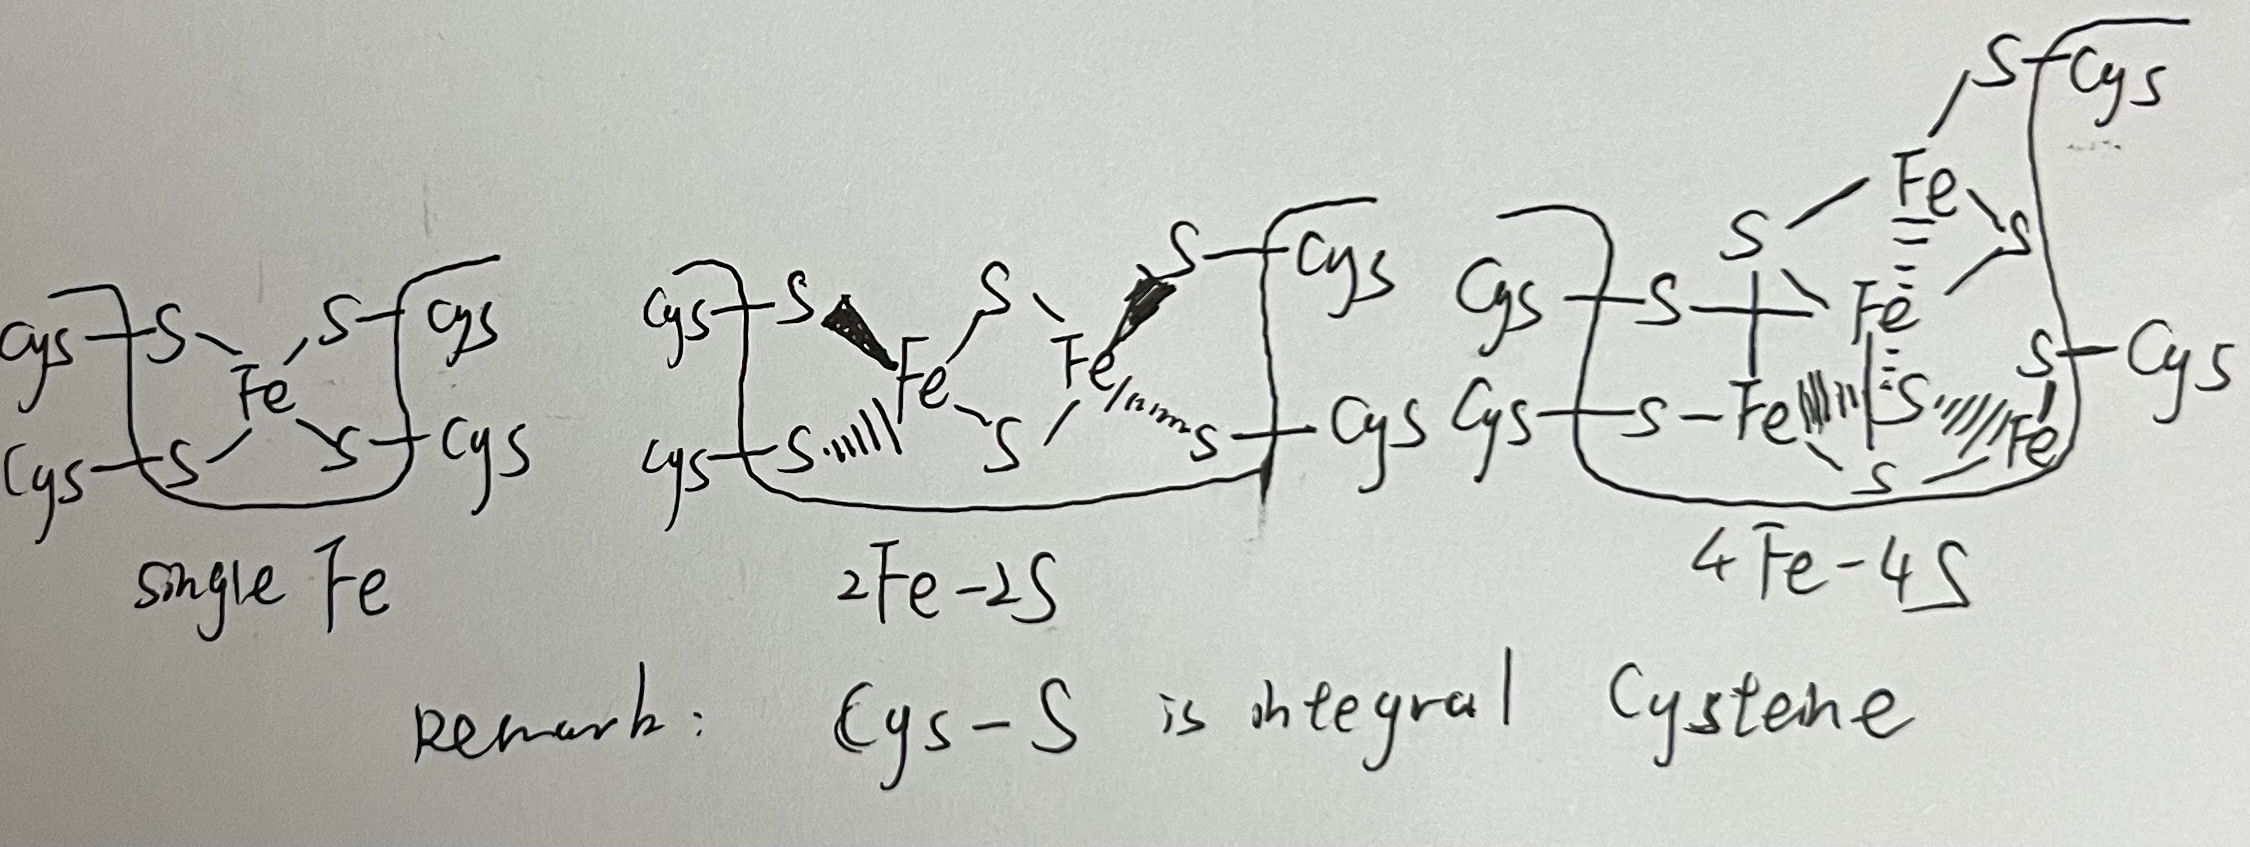 Cys S S Cys
Fe
Cys S S Cys
single Fe
Cys S S S Cys
Fe Fe
Cys S S S Cys
2Fe-2S
S Cys
Fe
S S
Cys S Fe
S Cys
Cys S Fe S Fe
S
4Fe-4S
Remark: Cys-S is integral Cysteine